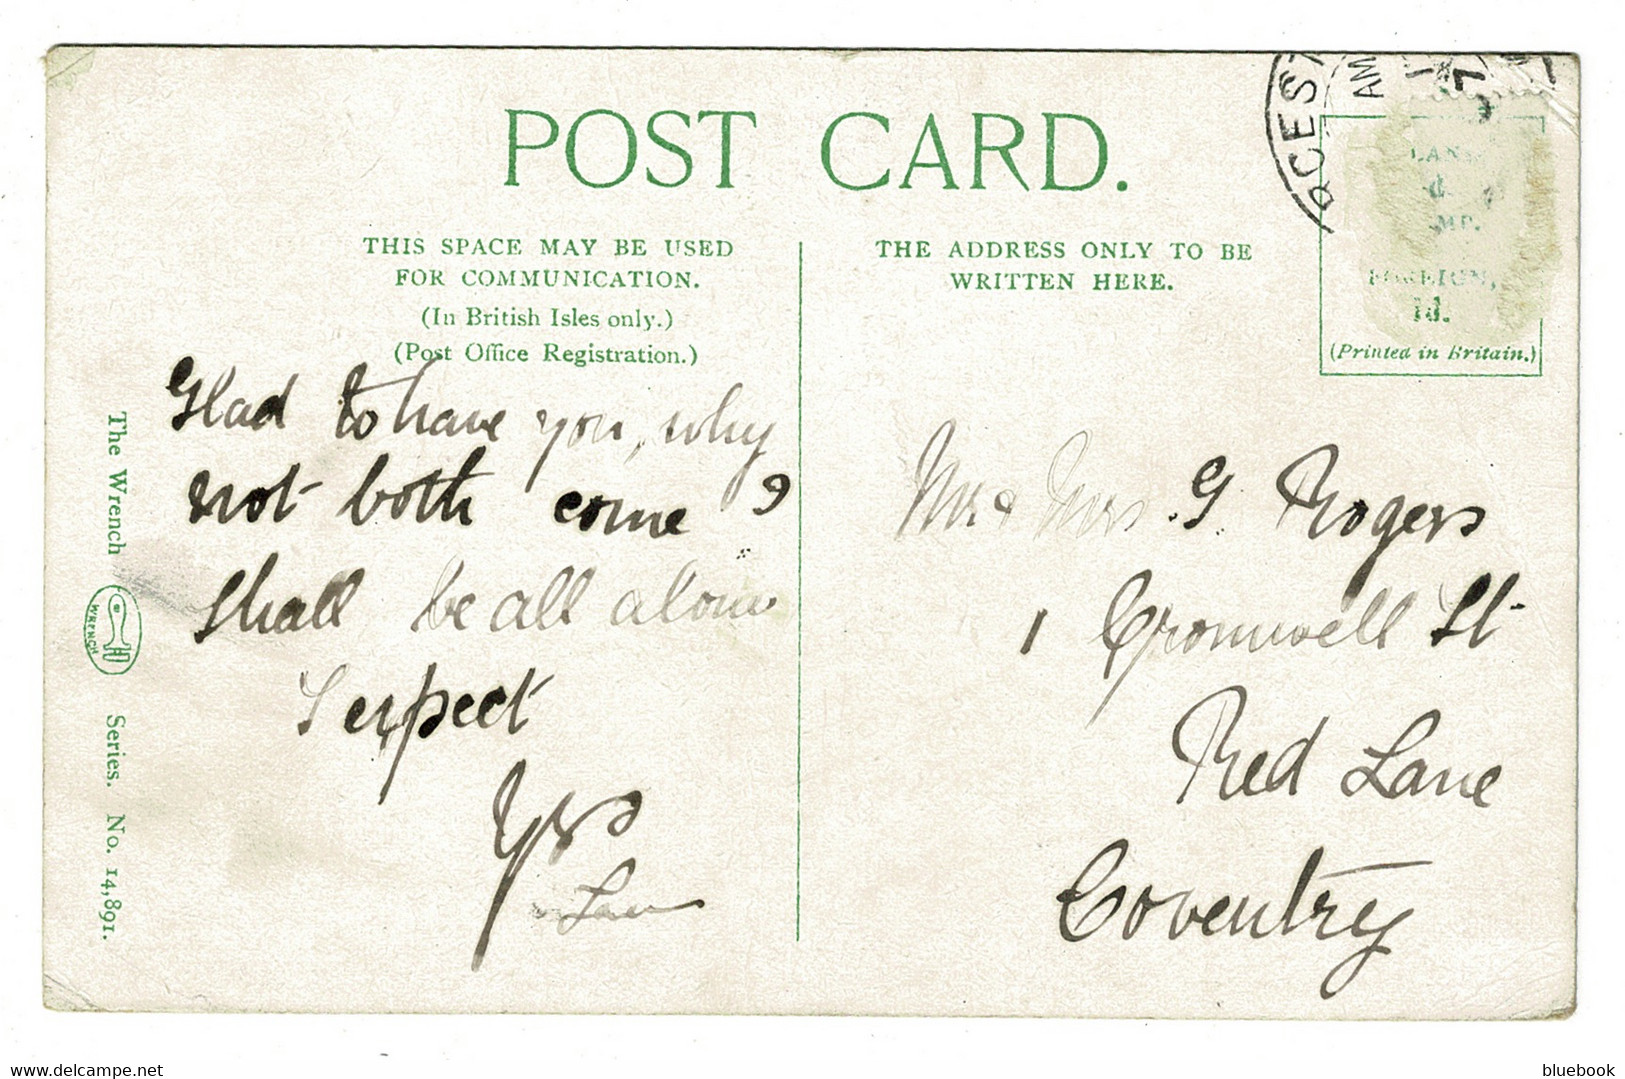 POST CARD.
THIS SPACE MAY BE USED
FOR COMMUNICATION.
(In British Isles only.)
(Post Office Registration.)
THE ADDRESS ONLY TO BE
WRITTEN HERE.
FOREIGN,
1d.
(Printed in Britain.)
AM
Glad to have you, why
not both come ?
Shall be all alone
I expect
Yrs
Mr & Mrs G. Rogers
1 Cromwell St
Red Lane
Coventry
The Wrench
WRENCH
Series. No. 14,891.
www.delcampe.net
bluebook